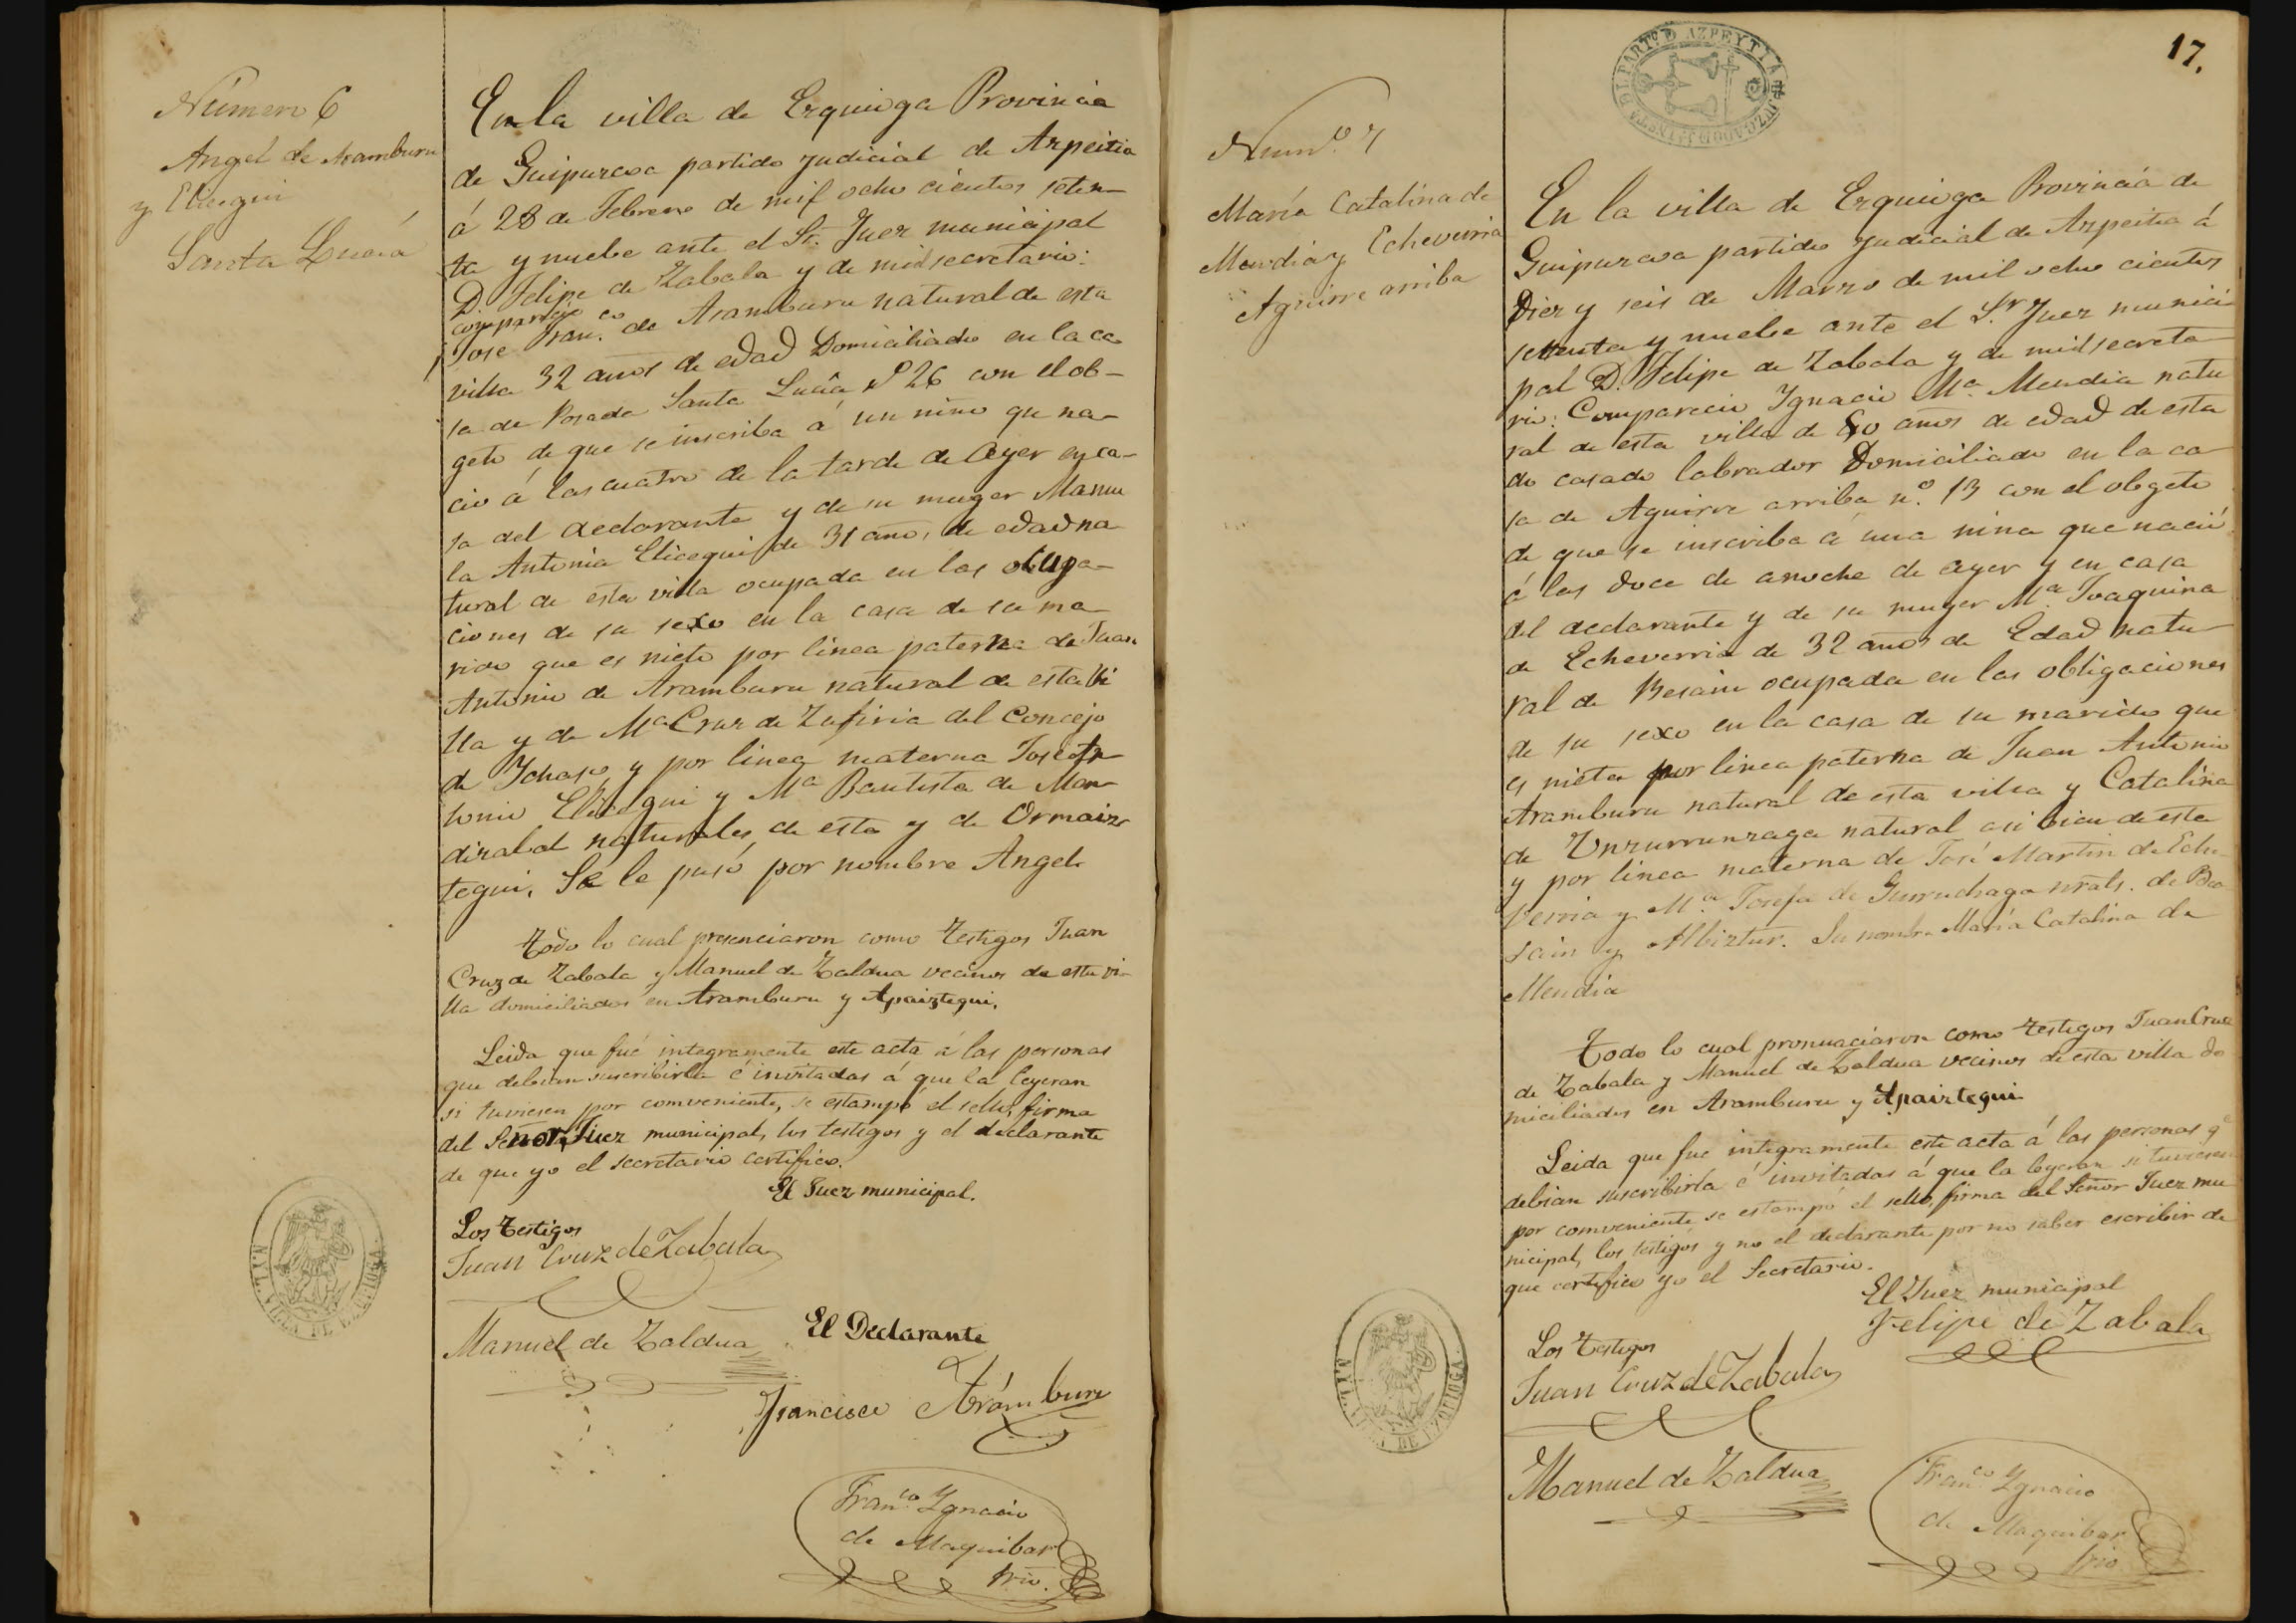 Número 6
Angel de Aramburu
y Elicegui
Santa Lucía
En la villa de Ezquioga Provincia
de Guipuzcoa partido judicial de Azpeitia
á 28 de Febrero de mil ocho cientos seten-
ta y nuebe ante el Sr. Juez municipal
D. Felipe de Zabala y de mí secretario:
compareció
José Fran.co de Aramburu natural de esta
villa 32 años de edad Domiciliado en la ca
sa de Posada Santa Lucía nº 26 con el ob-
geto de que se inscriba á un niño que na-
ció á las cuatro de la tarde de Ayer en ca-
sa del declarante y de su muger Manue
la Antonia Elicegui de 31 años de edad na
tural de esta villa ocupada en las obliga-
ciones de su sexo en la casa de su ma-
rido que es nieto por línea paterna de Juan
Antonio de Aramburu natural de esta Vi
lla y de Mª Cruz de Zufiria del Concejo
de Ychaso y por línea materna José An-
tonio Elicegui y Mª Bautista de Men-
dizabal naturales de esta y de Ormaiz-
tegui. Se le pusó por nombre Angel.
Todo lo cual presenciaron como Testigos Juan
Cruz de Zabala y Manuel de Zaldua vecinos de esta vi-
lla domiciliados en Aramburu y Apaiztegui.
Leida que fué integramente este acta á las personas
que debian suscribirla é invitadas á que la leyeran
si tuviesen por comveniente, se estampó el sello, firma
del Señor Juez municipal, los testigos y el declarante
de que yo el secretario certifico.
El Juez municipal.
Los Testigos
Juan Cruz de Zabala
Manuel de Zaldua
El Declarante
Francisco Arámburu
Fran.co Ygnacio
de Maquibar
Srio.
17.
PARTº D AZPEYTIA
Numº. 7
María Catalina de
Mendia y Echeverria
Aguirre arriba
En la villa de Ezquioga Provincia de
Guipuzcoa partido judicial de Azpeitia á
Diez y seis de Marzo de mil ocho cientos
setenta y nuebe ante el Sr. Juez munici
pal D. Felipe de Zabala y de mí secreta
rio: Compareció Ygnacio Mª. Mendia natu
ral de esta villa de años de edad de esta
do casado labrador Domiciliado en la ca
sa de Aguirre arriba nº. 13 con el obgeto
de que se inscriba á una niña que nació
á las doce de anoche de ayer y en casa
del declarante y de su muger Mª. Joaquina
de Echeverria de 32 años de Edad natu-
ral de Beasain ocupada en las obligaciones
de su sexo en la casa de su marido que
es nieta por línea paterna de Juan Antonio
Aramburu natural de esta villa y Catalina
de Unzurrunzaga natural asi bien de esta
y por línea materna de José Martin de Eche-
verria y Mª. Josefa de Gurruchaga nrals. de Bea
sain y Albiztur. Su nombre María Catalina de
Mendia
Todo lo cual pronuaciaron como Testigos Juan Cruz
de Zabala y Manuel de Zaldua vecinos de esta villa do
miciliados en Aramburu y Apaiztegui
Leida que fue integramente este acta á las personas qe
debian suscribirla é invitadas á que la leyeran si tuviesen
por comveniente se estampó el sello, firma del Señor Juez mu
nicipal, los testigos y no el declarante por no saber escribir de
que certifico yo el Secretario.
El Juez municipal
Felipe de Zabala
Los Testigos
Juan Cruz de Zabala
Manuel de Zaldua
Fran.co Ygnacio
de Maquibar
Srio